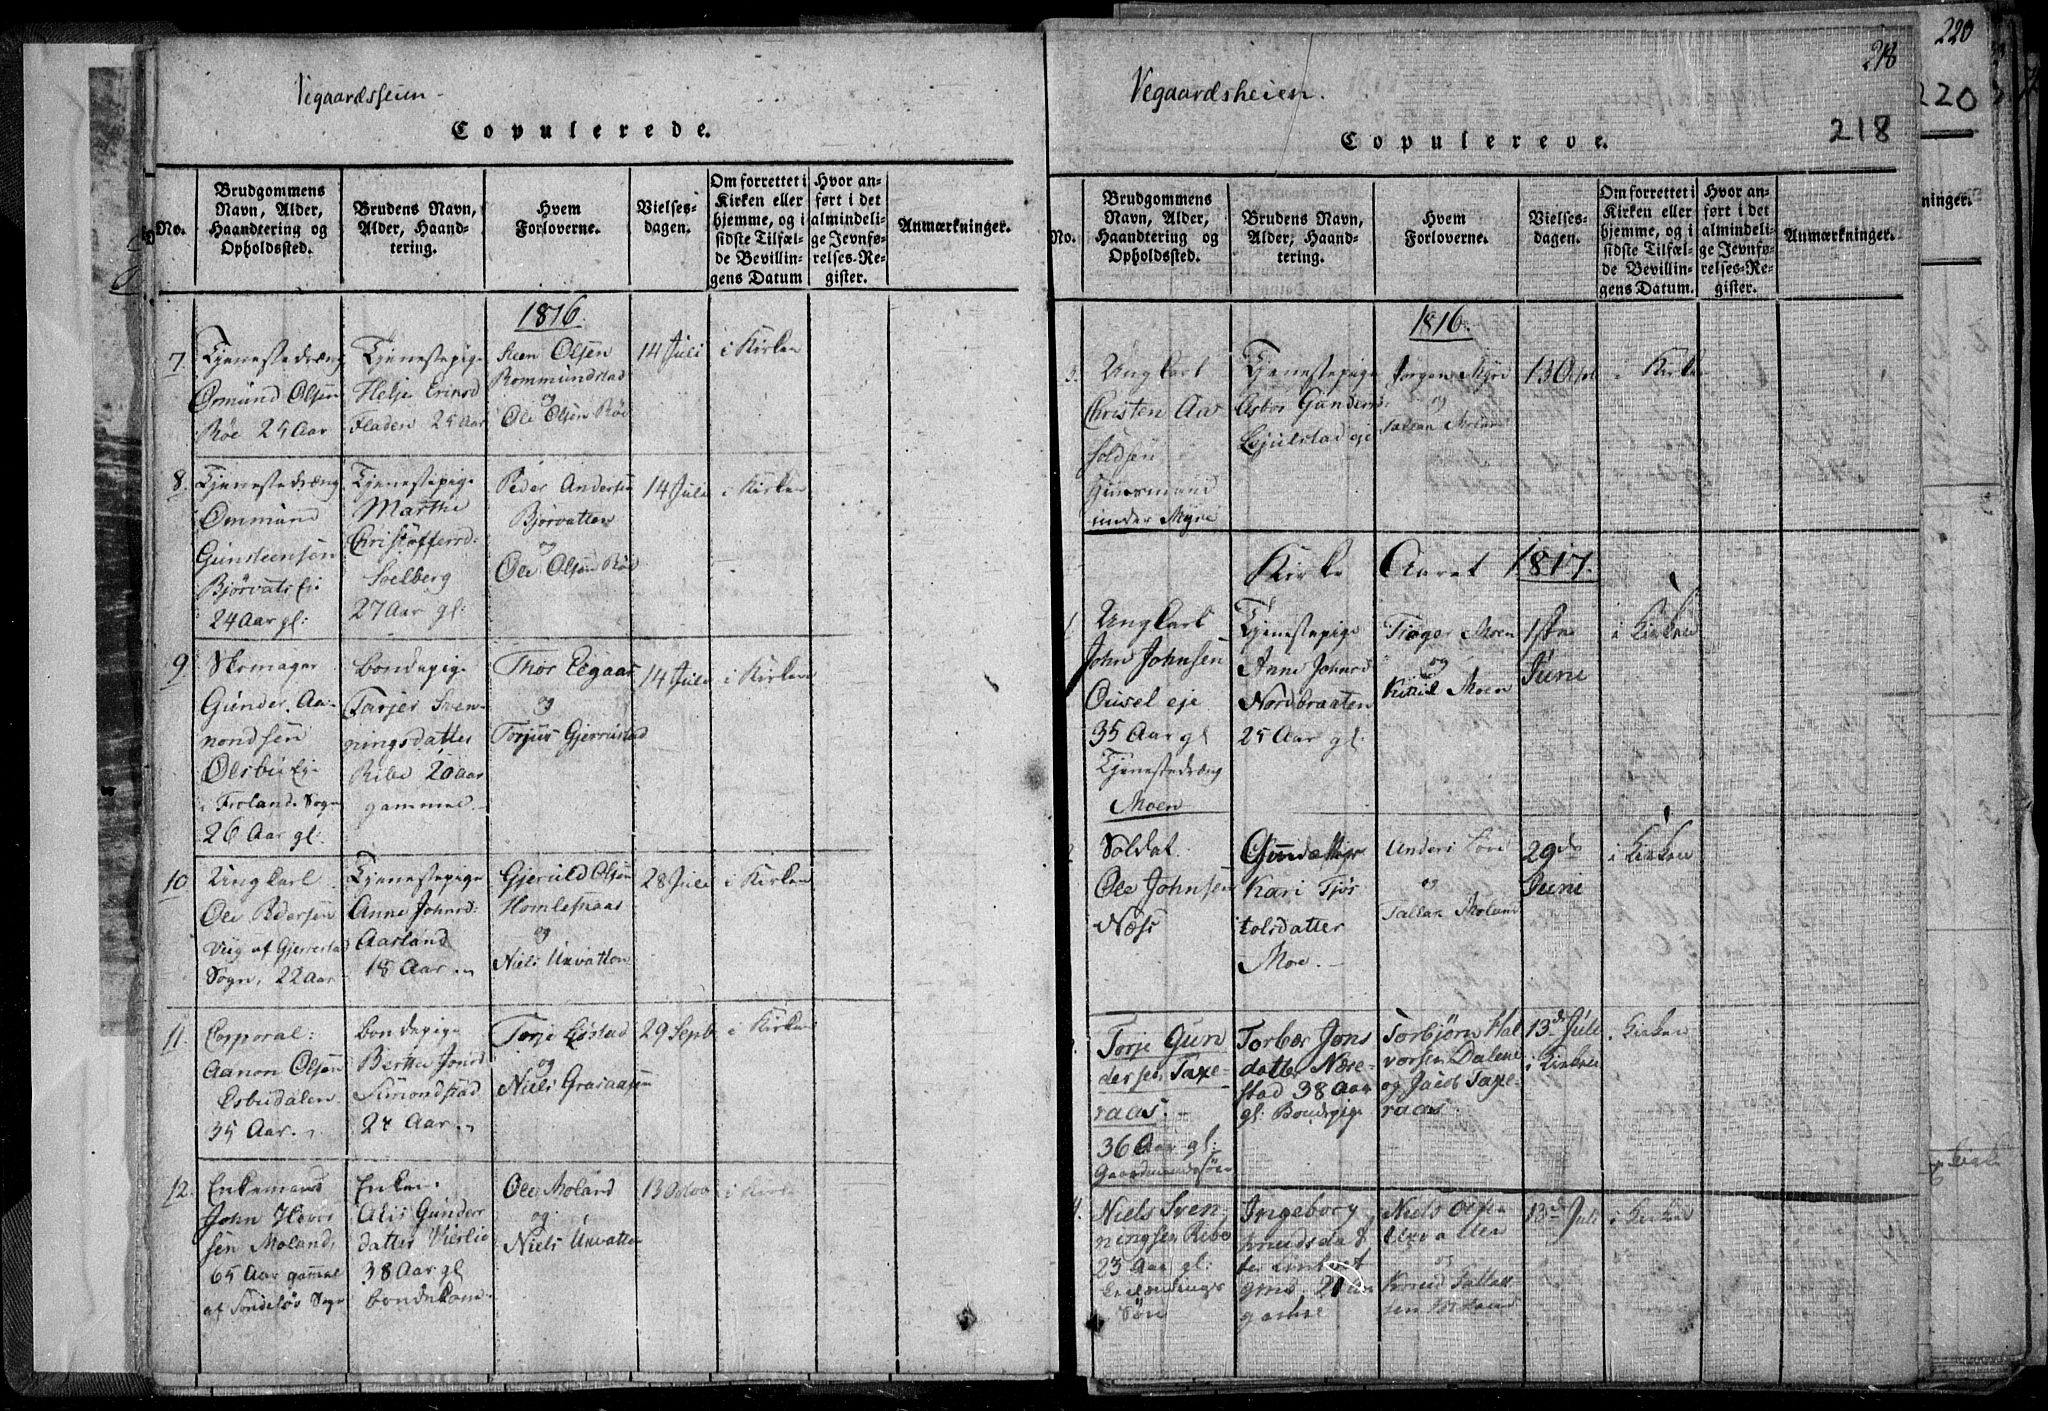 Vegaardsheien.
Copulerede.
No.
Brudgommens Navn, Alder, Haandtering og Opholdssted.
Brudens Navn, Alder, Haandtering.
Hvem Forloverne.
Vielsesdagen.
Om forrettet i Kirken eller hjemme, og i sidste Tilfælde Bevillingens Datum
Hvor anført i det almindelige Jevnførelses-Register.
Anmærkninger.
1816
7.
Tjenestedræng
Osmund Olsen
Røe 25 Aar
Tjenestepige
Helje
Fladen 25 Aar
Steen Olsen
Rommundstad
og
Ole Olsen Röe
14 Juli
i Kirken
8.
Tjenestedræng
Ommund
Gunsteensen
Bjørvats Eje
24 Aar gl:
Tjenestepige
Marthe
Christoffersd:
Soelberg
27 Aar gl:
Peder Andersen
Bjørvatten
og
Ole Olsen Röe
14 Juli
i Kirken
9.
Skomager
Gunder Aa-
nondsen
Olsbu Eje
i Froland Sogn
26 Aar gl:
Bondepige
Tarjer Sven-
ningsdatter
Ribe 20 Aar
gammel.
Thor
og
Torjus Gjerrestad
14 Juli
i Kirken
10
Ungkarl
Ole Pedersen
Viig af Gjerrestad
Sogn, 22 Aar
Tjenestepige
Anne Johnsd:
Aasland
18 Aar.
Gjeruld Olsen
Homlesnaas
og
Niels Unvatten
28 Juli
i Kirken
11.
Corporal:
Aanon Olsen
Esbudalen
35 Aar.
Bondepige
Berthe Jonsd
Simonstad
24 Aar.
Torje
og
Niels Grasaasen
29 Septb
i Kirken
12.
Enkemand
John
sen Moland,
65 Aar gammel
af Søndeløv Sogn
Enken.
Alis Gunder
datter Vierlie
38 Aar gl
bondekone
Ole Moland
og
Niels Unvatten
13 Octob
i Kirken
Vegaardsheien.
218
218
220
220
Copulerede.
No.
Brudgommens Navn, Alder, Haandtering og Opholdssted.
Brudens Navn, Alder, Haandtering.
Hvem Forloverne.
Vielsesdagen.
Om forrettet i Kirken eller hjemme, og i sidste Tilfælde Bevillingens Datum.
Hvor anført i det almindelige Jevnførelses-Register.
Anmærkninger.
1816.
Ungkarl
Christen Aa
soldsen
Huusmand
under Myre
Tjenestepige
Asbor Gunders
eje
Jørgen Myre
og
Tallak Moland
13 Oct
i Kirken
Kirke Aaret 1817.
1
Ungkarl
John Johnsen
Ousel eje
35 Aar gl
Tjenestedræng
Moen
Tjenestepige
Anne Johnsd
Nordbraaten
25 Aar gl.
Moen
og
Kittil Moen
1ste
Juni
i Kirken
2
Soldat
Ole Johnsen
Næss
Kari Tjös
tolsdatter
Moe.
Anders
og
Tallak Moland
29de
Juni
i Kirken
Torje Gun
dersen Taxe-
raas.
36 Aar gl:
Gaardmandssön
Torbør Jons
datter Nære-
stad 38 Aar
gl: Bondepige
Torbjörn Hal
vorsen Dalene
og Jacob Taxe-
raas.
13de Juli
i Kirken
i Kirken
4.
Niels Sven-
ningsen Ribe
23 Aar gl:
Sön
Ingeborg
Knudsdat
ter
gammel
Niels Olsen
Unvatten
og
Knud Tallak
sen
13de Juli
i Kirken